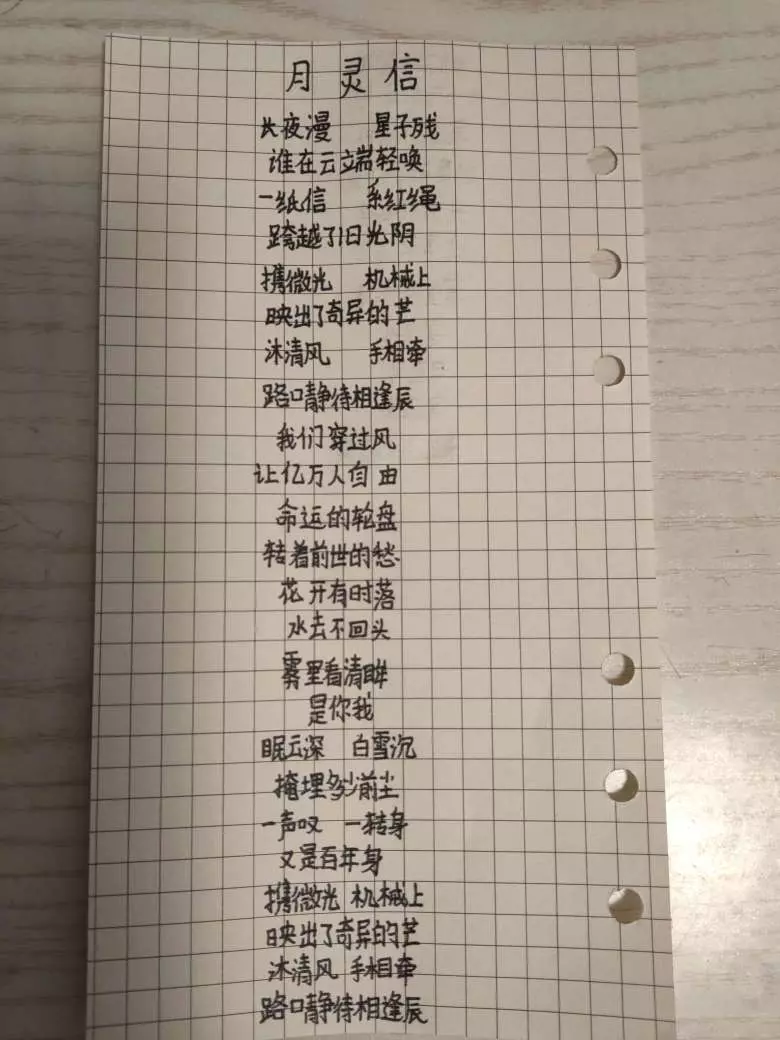 月灵信
长夜漫 星子残
谁在云端轻唤
一纸信 系红绳
跨越了旧光阴
携微光 机械上
映出了奇异的芒
沐清风 手相牵
路口静待相逢辰
我们穿过风
让亿万人自由
命运的轮盘
转着前世的愁
花开有时落
水去不回头
雾里看清眸
是你我
眠云深 白雪沉
掩埋多少前尘
一声叹 一转身
又是百年身
携微光 机械上
映出了奇异的芒
沐清风 手相牵
路口静待相逢辰